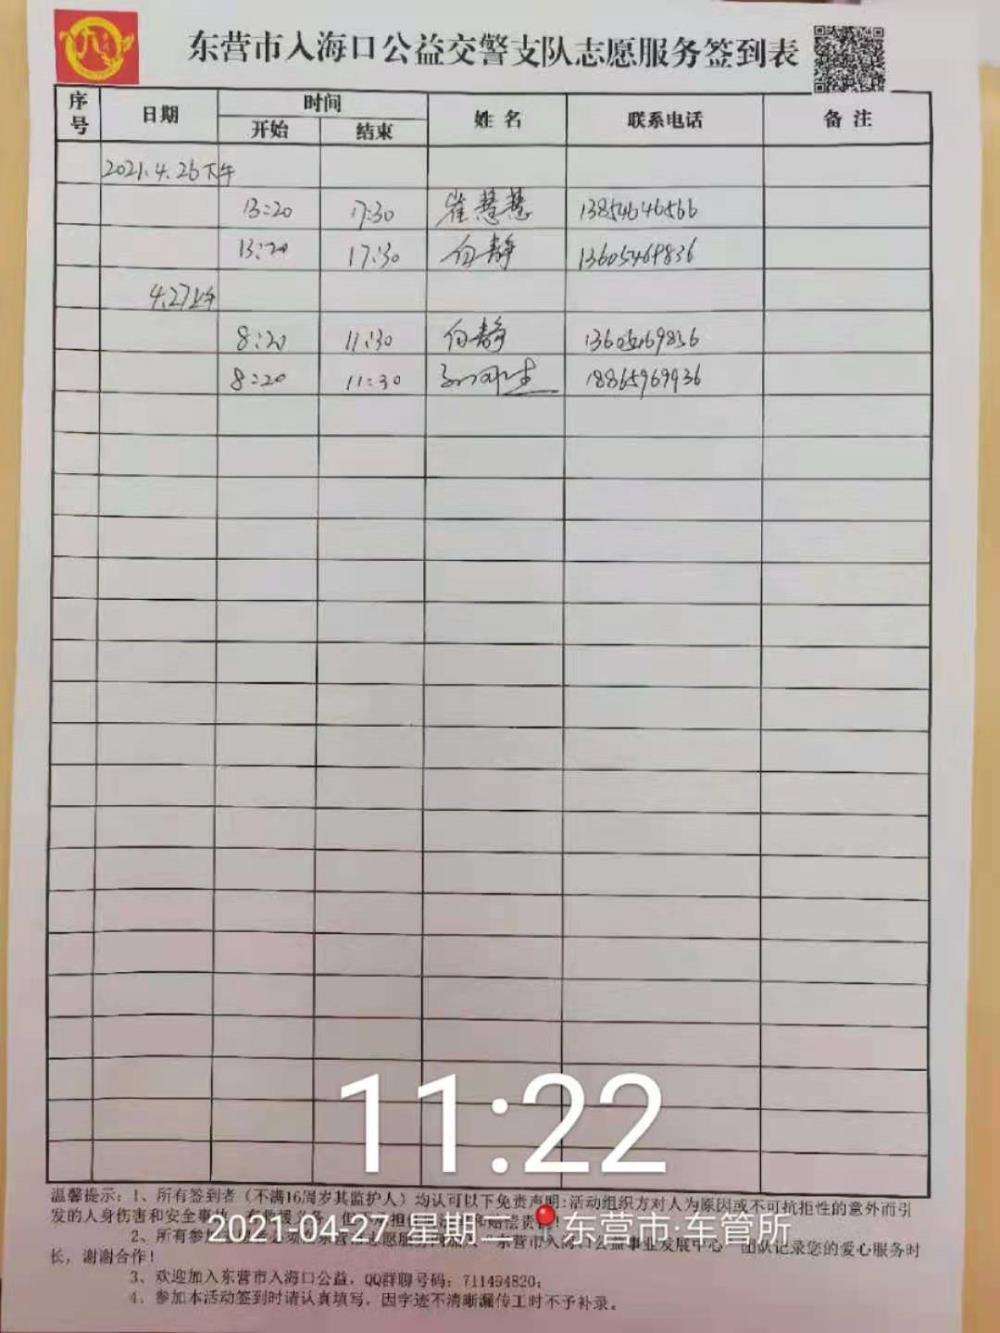 东营市入海口公益交警支队志愿服务签到表
序号 日期 时间 姓名 联系电话 备注
开始 结束
2021.4.26下午
13:20 17:30 崔慧慧 13854646566
13:20 17:30 白静 13605469836
4.27上午
8:20 11:30 白静 13605469836
8:20 11:30 18865969936
11:22
温馨提示：1、所有签到者（不满16周岁其监护人）均认可以下免责声明：活动组织方对人为原因或不可抗拒性的意外而引
发的人身伤害和安全事
2021-04-27 星期二 东营市·车管所
2、所有参 东营市入海口公益事业发展中心 团队记录您的爱心服务时
长，谢谢合作！
3、欢迎加入东营市入海口公益，QQ群聊号码：711494820；
4、参加本活动签到时请认真填写，因字迹不清晰漏传工时不予补录。